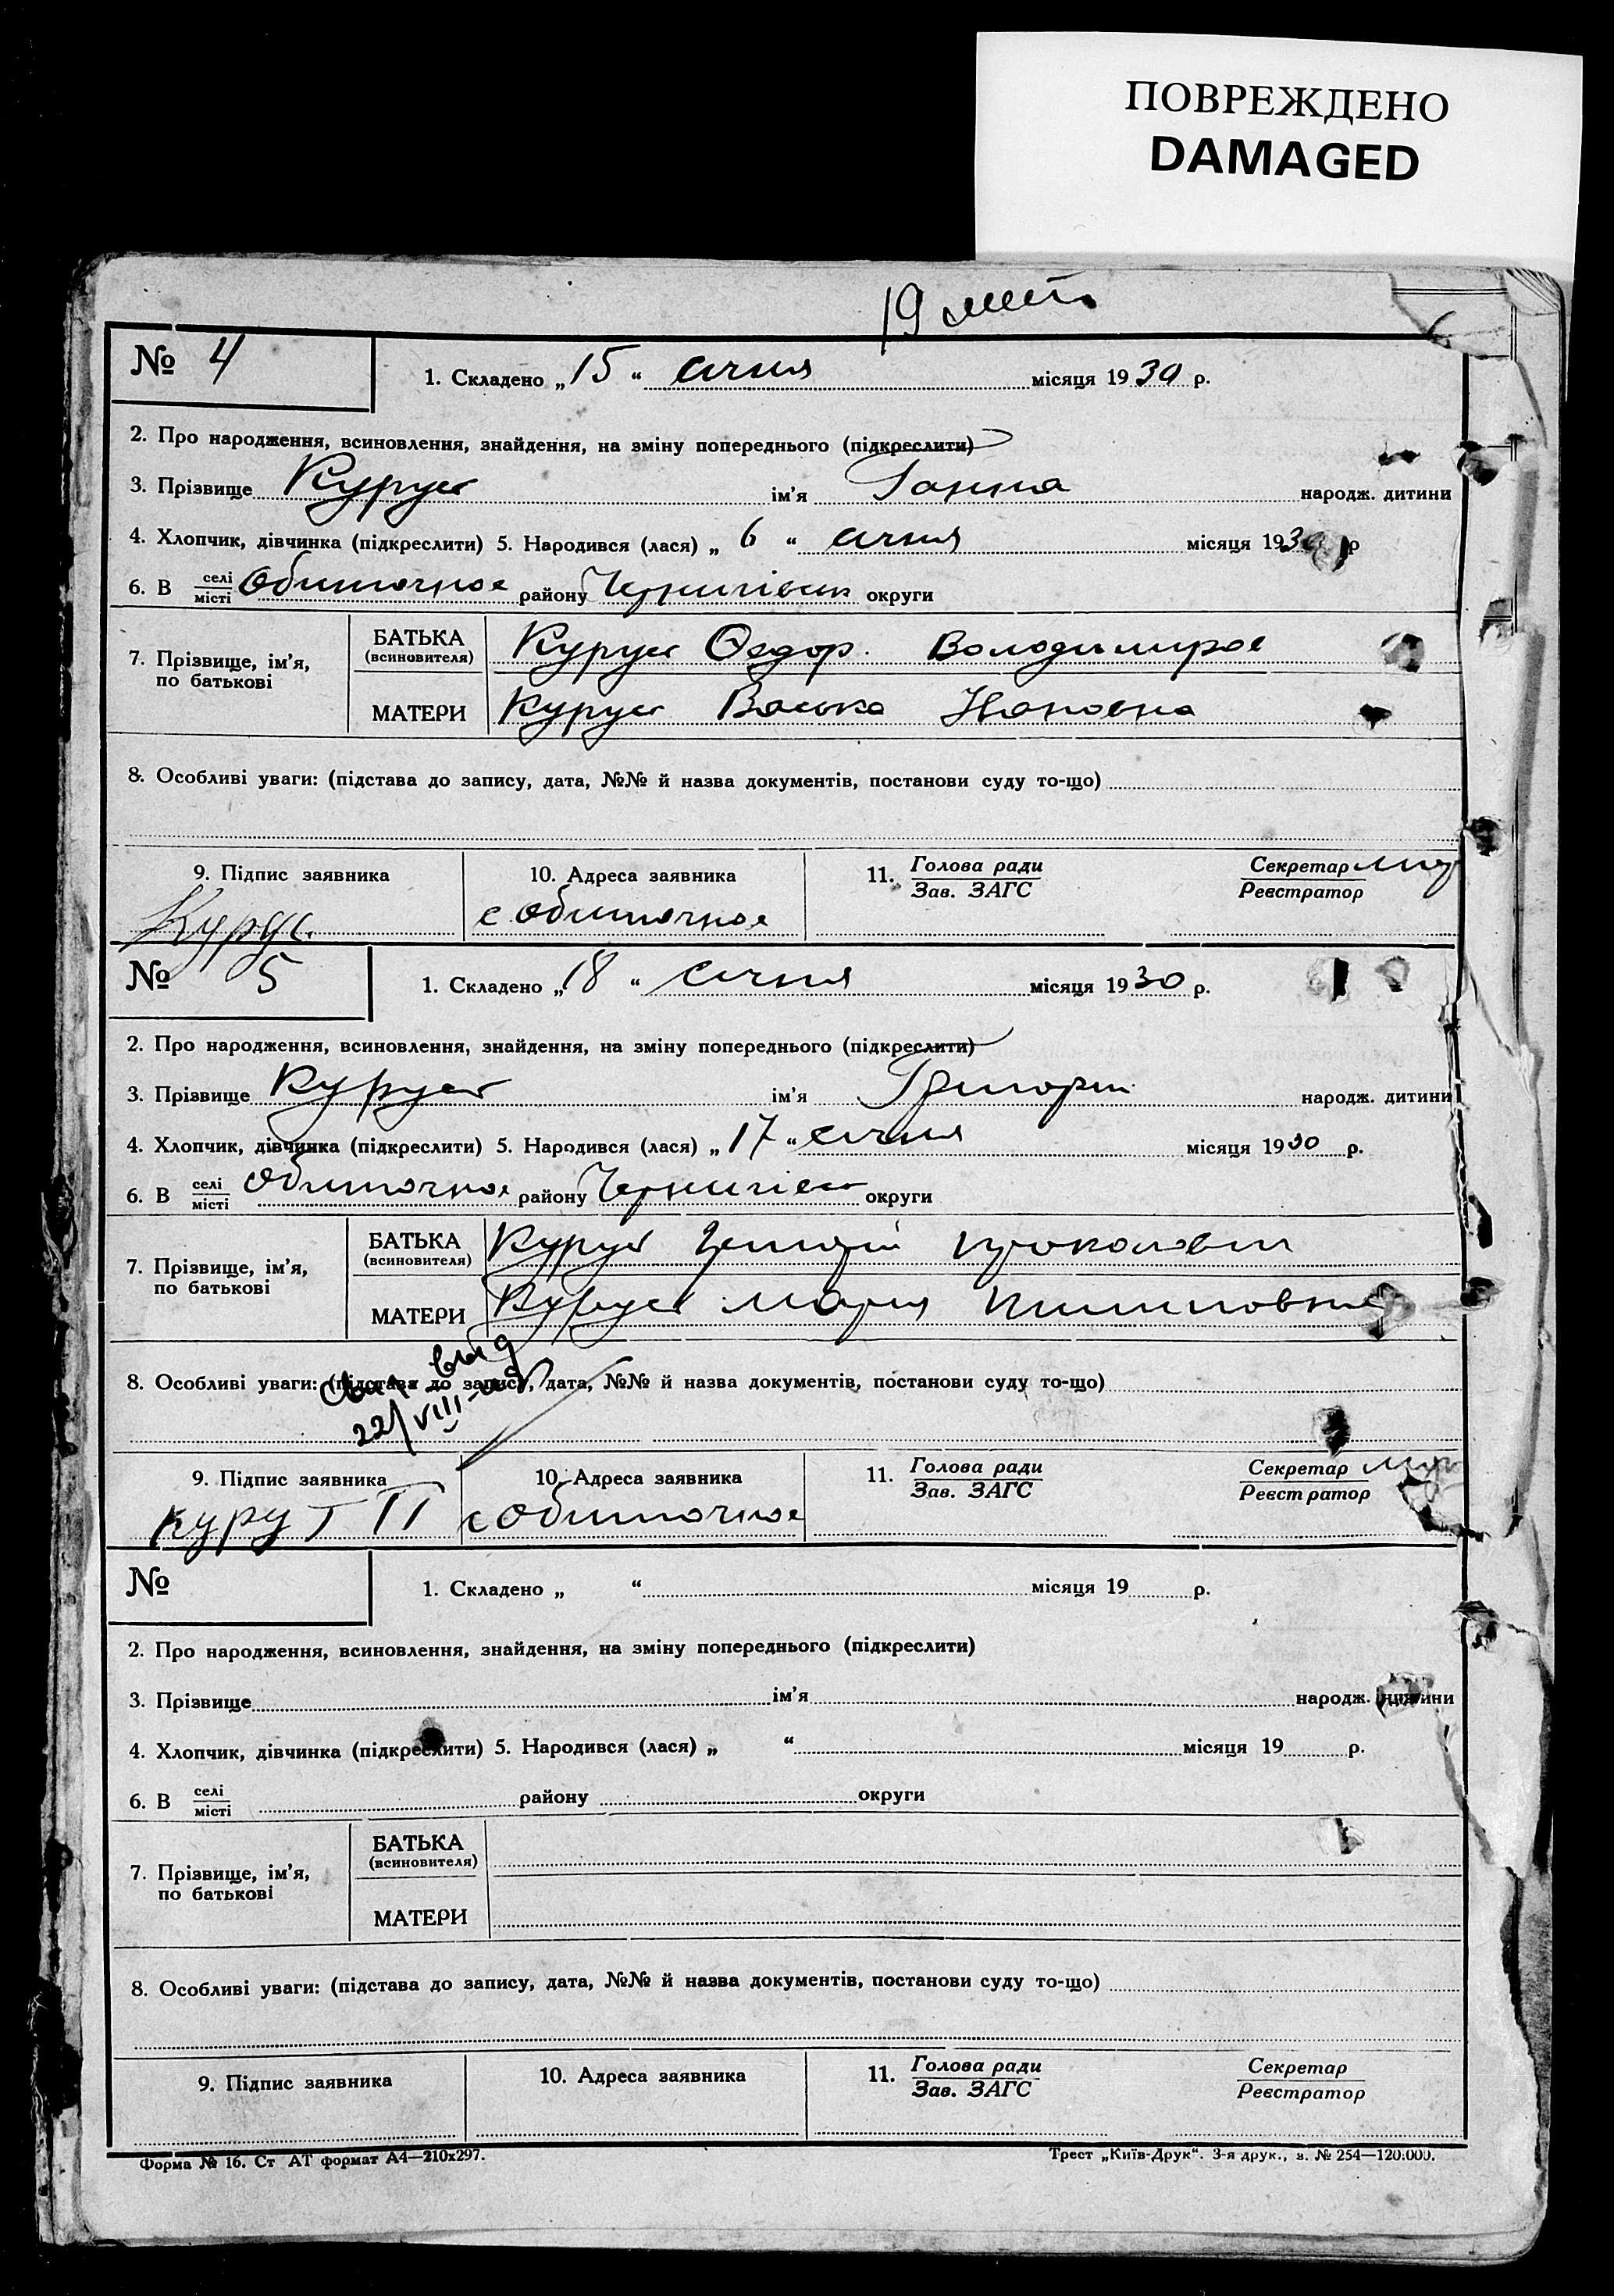 ПОВРЕЖДЕНО
DAMAGED
19
№ 4
1. Складено „ 15 “ січня місяця 1930 р.
2. Про народження, всиновлення, знайдення, на зміну попереднього (підкреслити)
3. Прізвище ім'я Ганна народж. дитини
4. Хлопчик, дівчинка (підкреслити) 5. Народився (лася) „ 6 “ січня місяця 1930 р
6. В селі/місті Обиточное району округи
7. Прізвище, ім'я, по батькові
БАТЬКА (всиновителя) Федор.
МАТЕРИ
8. Особливі уваги: (підстава до запису, дата, №№ й назва документів, постанови суду то-що)
9. Підпис заявника 10. Адреса заявника 11. Голова ради/Зав. ЗАГС Секретар/Реєстратор
с Обиточное
№ 5
1. Складено „ 18 “ січня місяця 1930 р.
2. Про народження, всиновлення, знайдення, на зміну попереднього (підкреслити)
3. Прізвище ім'я народж. дитини
4. Хлопчик, дівчинка (підкреслити) 5. Народився (лася) „ 17 “ січня місяця 1930 р.
6. В селі/місті Обиточное району округи
7. Прізвище, ім'я, по батькові
БАТЬКА (всиновителя)
МАТЕРИ Мария
8. Особливі уваги: (підстава до запису, дата, №№ й назва документів, постанови суду то-що)
22/VIII
9. Підпис заявника 10. Адреса заявника 11. Голова ради/Зав. ЗАГС Секретар/Реєстратор
КуруТ П с Обиточное
№
1. Складено „ “ місяця 19 р.
2. Про народження, всиновлення, знайдення, на зміну попереднього (підкреслити)
3. Прізвище ім'я народж. дитини
4. Хлопчик, дівчинка (підкреслити) 5. Народився (лася) „ “ місяця 19 р.
6. В селі/місті району округи
7. Прізвище, ім'я, по батькові
БАТЬКА (всиновителя)
МАТЕРИ
8. Особливі уваги: (підстава до запису, дата, №№ й назва документів, постанови суду то-що)
9. Підпис заявника 10. Адреса заявника 11. Голова ради/Зав. ЗАГС Секретар/Реєстратор
Форма № 16. Ст АТ формат А4—210x297. Трест „Київ-Друк“. 3-я друк., з. № 254—120.000.